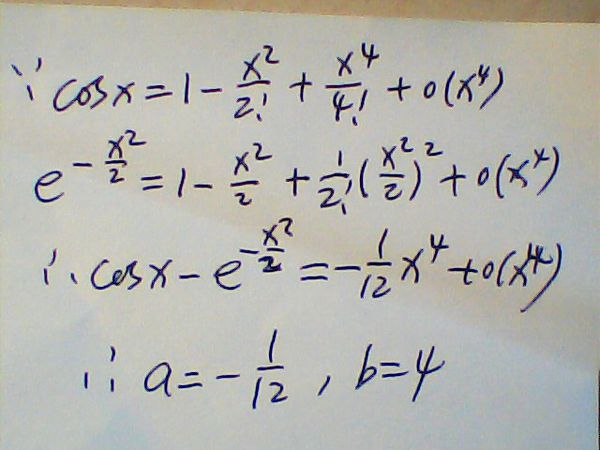 ∵ cosx = 1 - x²/2! + x⁴/4! + o(x⁴)
e^(-x²/2) = 1 - x²/2 + 1/2! (x²/2)² + o(x⁴)
∴ cosx - e^(-x²/2) = -1/12 x⁴ + o(x⁴)
∴ a = -1/12 , b = 4